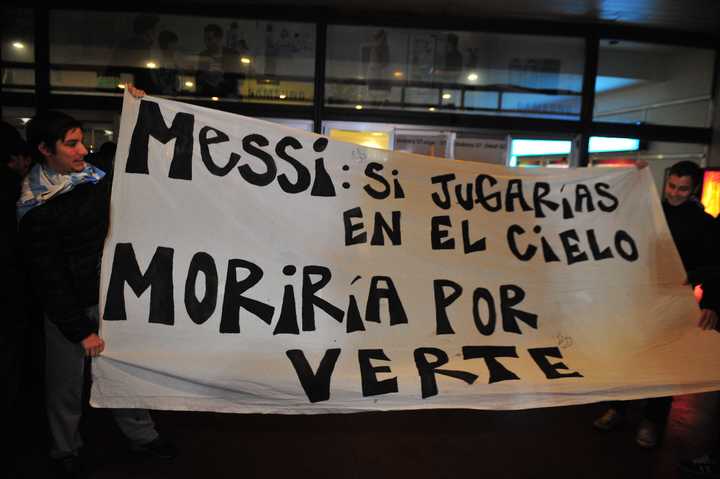 MESSI: SI JUGARÍAS
EN EL CIELO
MORIRÍA POR
VERTE